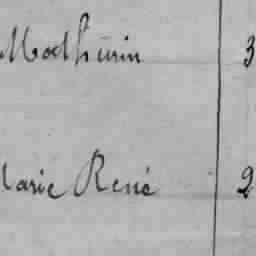 Mathurin 3
Marie René 2